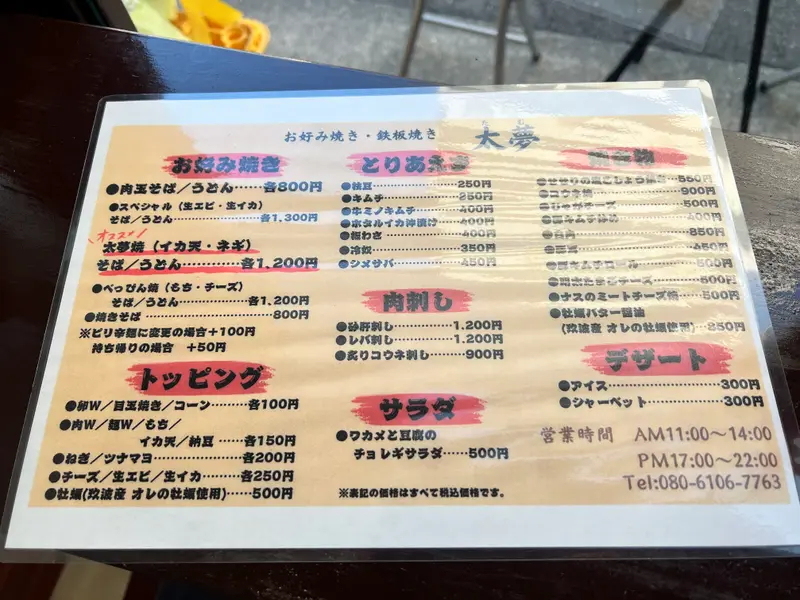 お好み焼き・鉄板焼き
たむ
太夢
お好み焼き
●肉玉そば／うどん……各800円
●スペシャル（生エビ・生イカ）
そば／うどん……………各1,300円
オススメ！
太夢焼（イカ天・ネギ）
そば／うどん………各1,200円
●べっぴん焼（もち・チーズ）
そば／うどん…………各1,200円
●焼きそば………………800円
※ピリ辛麺に変更の場合+100円
持ち帰りの場合　+50円
トッピング
●卵W／目玉焼き／コーン………各100円
●肉W／麺W／もち／
イカ天／納豆……各150円
●ねぎ／ツナマヨ……………各200円
●チーズ／生エビ／生イカ……各250円
●牡蠣(玖波産 オレの牡蠣使用)……500円
とりあえず
●枝豆…………………250円
●キムチ………………250円
●ホタルイカ沖漬け……400円
●板わさ………………400円
●冷奴…………………350円
●シメサバ……………450円
肉刺し
●砂肝刺し……………1,200円
●レバ刺し……………1,200円
●炙りコウネ刺し………900円
サラダ
●ワカメと豆腐の
チョレギサラダ……500円
※表記の価格はすべて税込価格です。
550円
●コウネ焼……………900円
●じゃがチーズ…………500円
400円
850円
450円
500円
500円
●ナスのミートチーズ焼……500円
●牡蠣バター醤油
(玖波産 オレの牡蠣使用)…250円
デザート
●アイス…………………300円
●シャーベット…………300円
営業時間　AM11:00～14:00
PM17:00～22:00
Tel:080-6106-7763